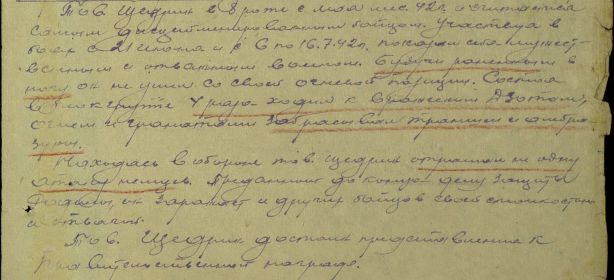 Тов. Щедрин в 8 роте с мая мес. 42г. и считается
самым дисциплинированным бойцом. Участвуя в
боях с 21 июня и с 6 по 16.7.42г. показал себя мужест-
венным и отважным воином. Будучи раненным в
ноги он не ушел со своей огневой позиции. Состоя
в блокгруппе 4 раза ходил к вражеским ДЗОТам,
огнем и гранатами забрасывал траншеи и амбра-
зуры.
Находясь в обороне тов. Щедрин отражал не одну
атаку немцев. Преданный до конца делу защиты
Родины, он заражает и других бойцов своей стойкостью
и отвагой.
Тов. Щедрин достоин представления к
правительственной награде.